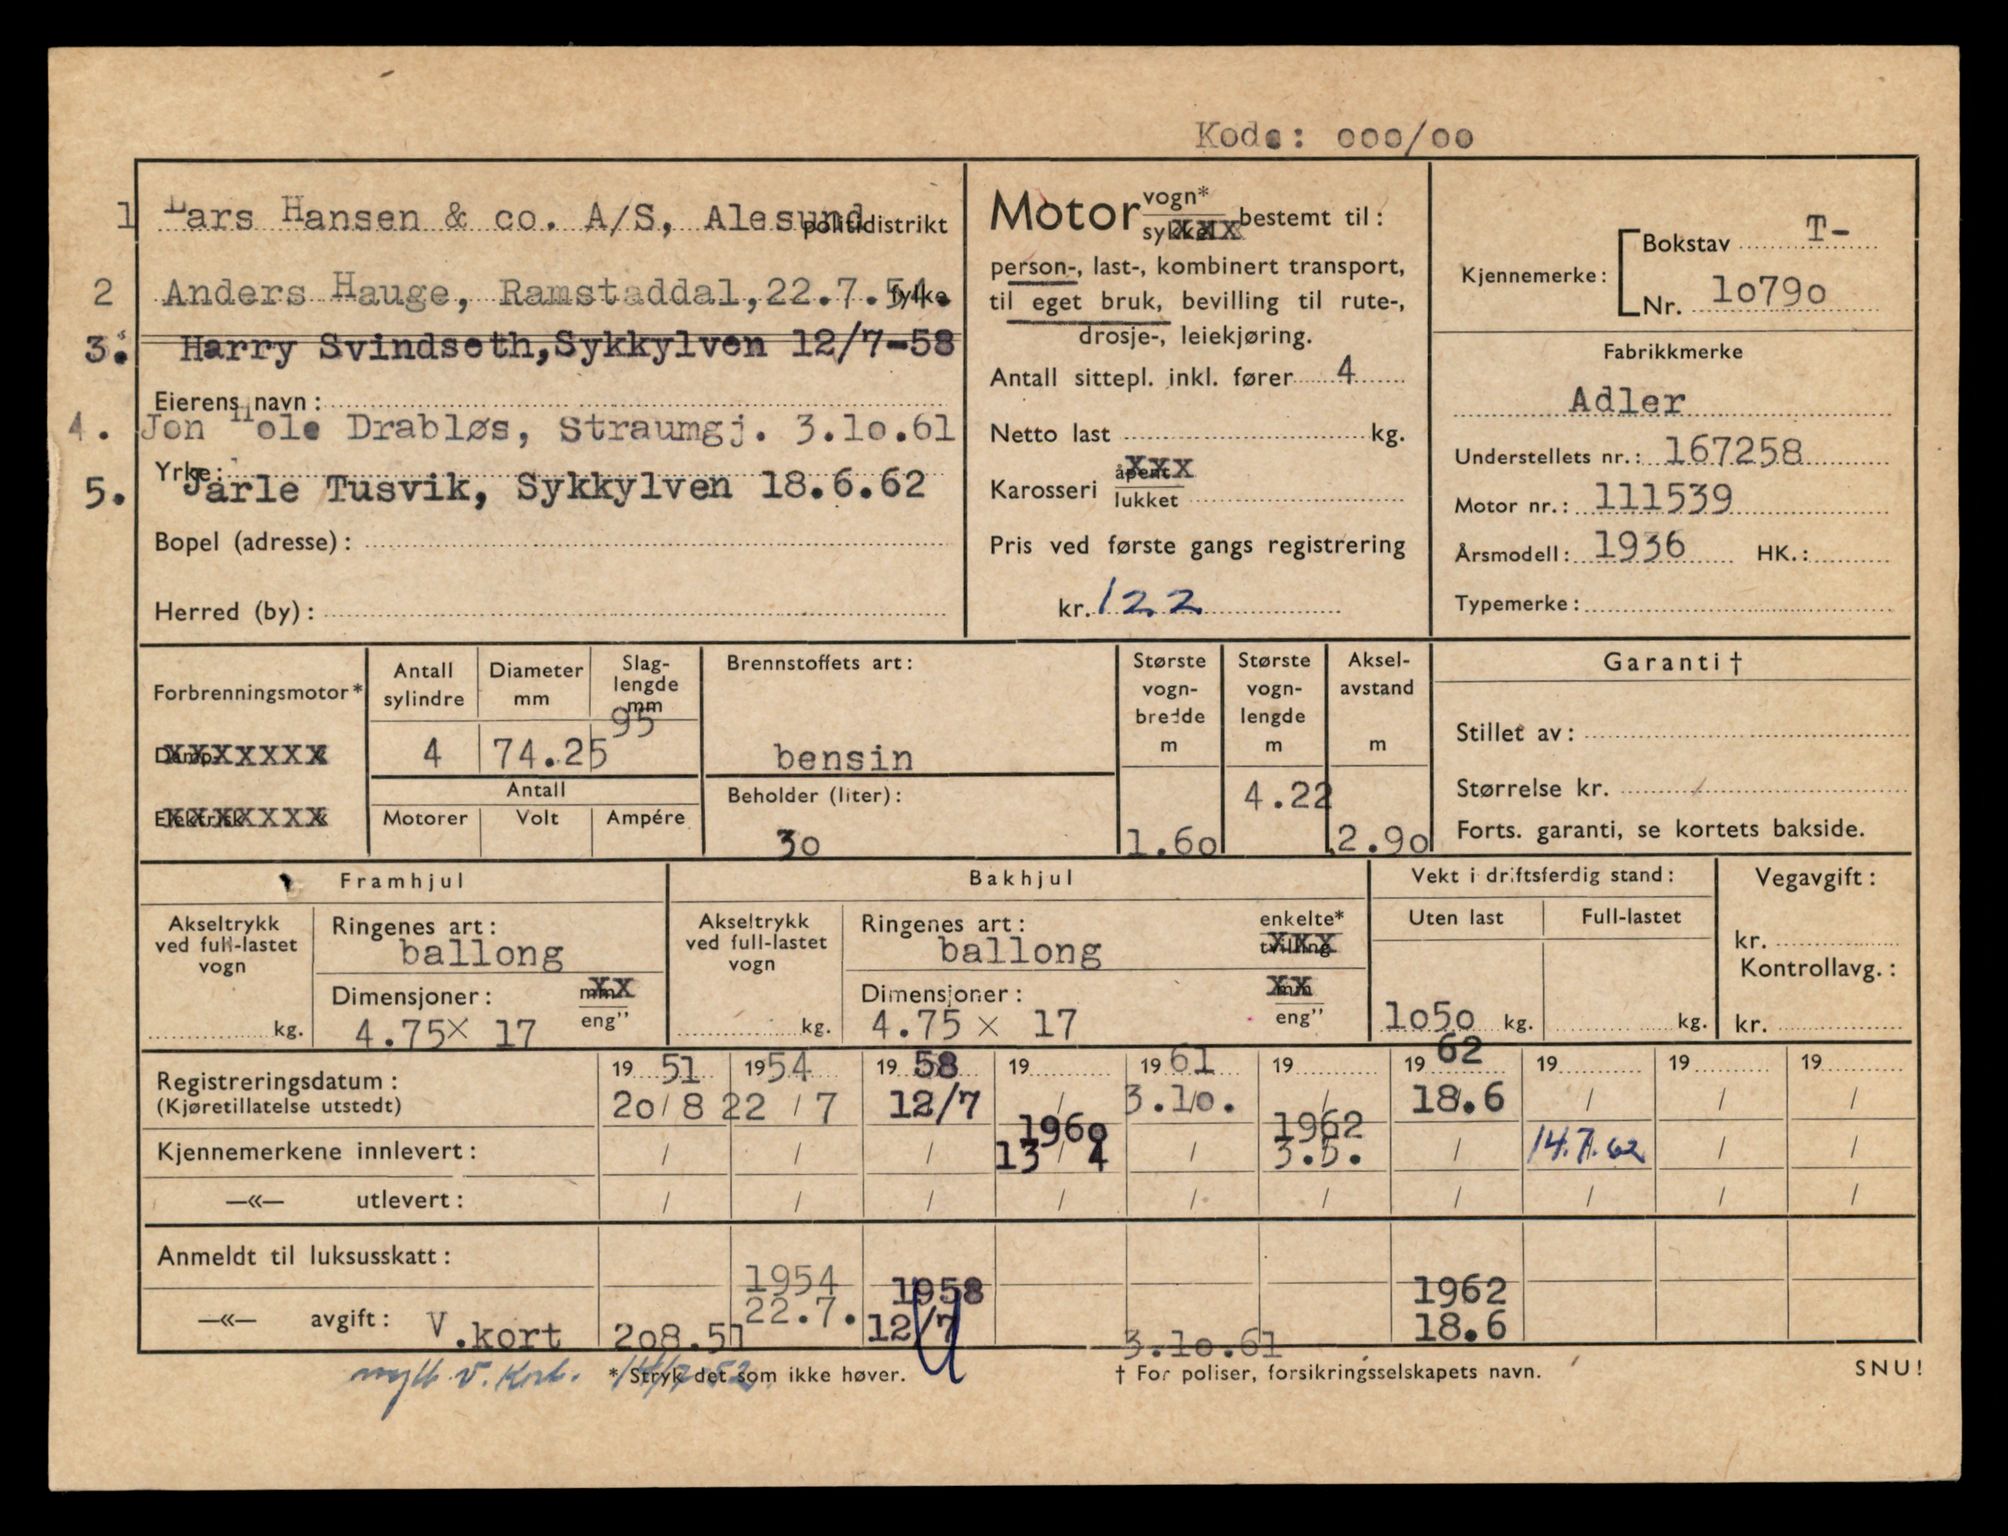 Kode: ooo/oo
1 Lars Hansen & co. A/S, Alesund politidistrikt
2 Anders Hauge, Ramstaddal, 22.7.54. fylke
3. Harry Svindseth, Sykkylven 12/7-58
Eierens navn:
4. Jon Hole Drabløs, Straumgj. 3.1o.61
Yrke:
5. Jarle Tusvik, Sykkylven 18.6.62
Bopel (adresse):
Herred (by):
Motor vogn* sykkel XXX bestemt til:
person-, last-, kombinert transport,
til eget bruk, bevilling til rute-,
drosje-, leiekjøring.
Antall sittepl. inkl. fører 4
Netto last kg.
Karosseri åpent XXX lukket
Pris ved første gangs registrering
kr. 122
Kjennemerke: Bokstav T-
Nr. 1o79o
Fabrikkmerke
Adler
Understellets nr.: 167258
Motor nr.: 111539
Årsmodell: 1936 HK.:
Typemerke:
Forbrenningsmotor*
Damp XXXXXXX
Elektrisk XXXXXXX
Antall sylindre
4
Diameter mm
74.25
Slag-lengde mm
95
Antall
Motorer Volt Ampére
Brennstoffets art:
bensin
Beholder (liter):
3o
Største vogn-bredde m
1.6o
Største vogn-lengde m
4.22
Aksel-avstand m
2.9o
Garanti †
Stillet av:
Størrelse kr.
Forts. garanti, se kortets bakside.
Framhjul
Akseltrykk ved full-lastet vogn
kg.
Ringenes art:
ballong
Dimensjoner: mm XX eng"
4.75 x 17
Bakhjul
Akseltrykk ved full-lastet vogn
kg.
Ringenes art: enkelte* tvilling XXX
ballong
Dimensjoner: mm XX eng"
4.75 x 17
Vekt i driftsferdig stand:
Uten last Full-lastet
1o5o kg. kg.
Vegavgift:
kr.
Kontrollavg.:
kr.
19 51 19 54 19 58 19 19 61 19 19 62 19 19 19
Registreringsdatum:
(Kjøretillatelse utstedt)
2o/8 22/7 12/7 / 3.1o. / 18.6 / / /
Kjennemerkene innlevert: / / / 196o 13/4 / 1962 3.5. / 14.7.62 / /
—«— utlevert: / / / / / / / / / /
Anmeldt til luksusskatt:
—«— avgift: V.kort 2o8.51 1954 22.7. 1958 12/7 3.1o.61 1962 18.6
v. Kort.
* Stryk det som ikke høver.
† For poliser, forsikringsselskapets navn.
SNU!